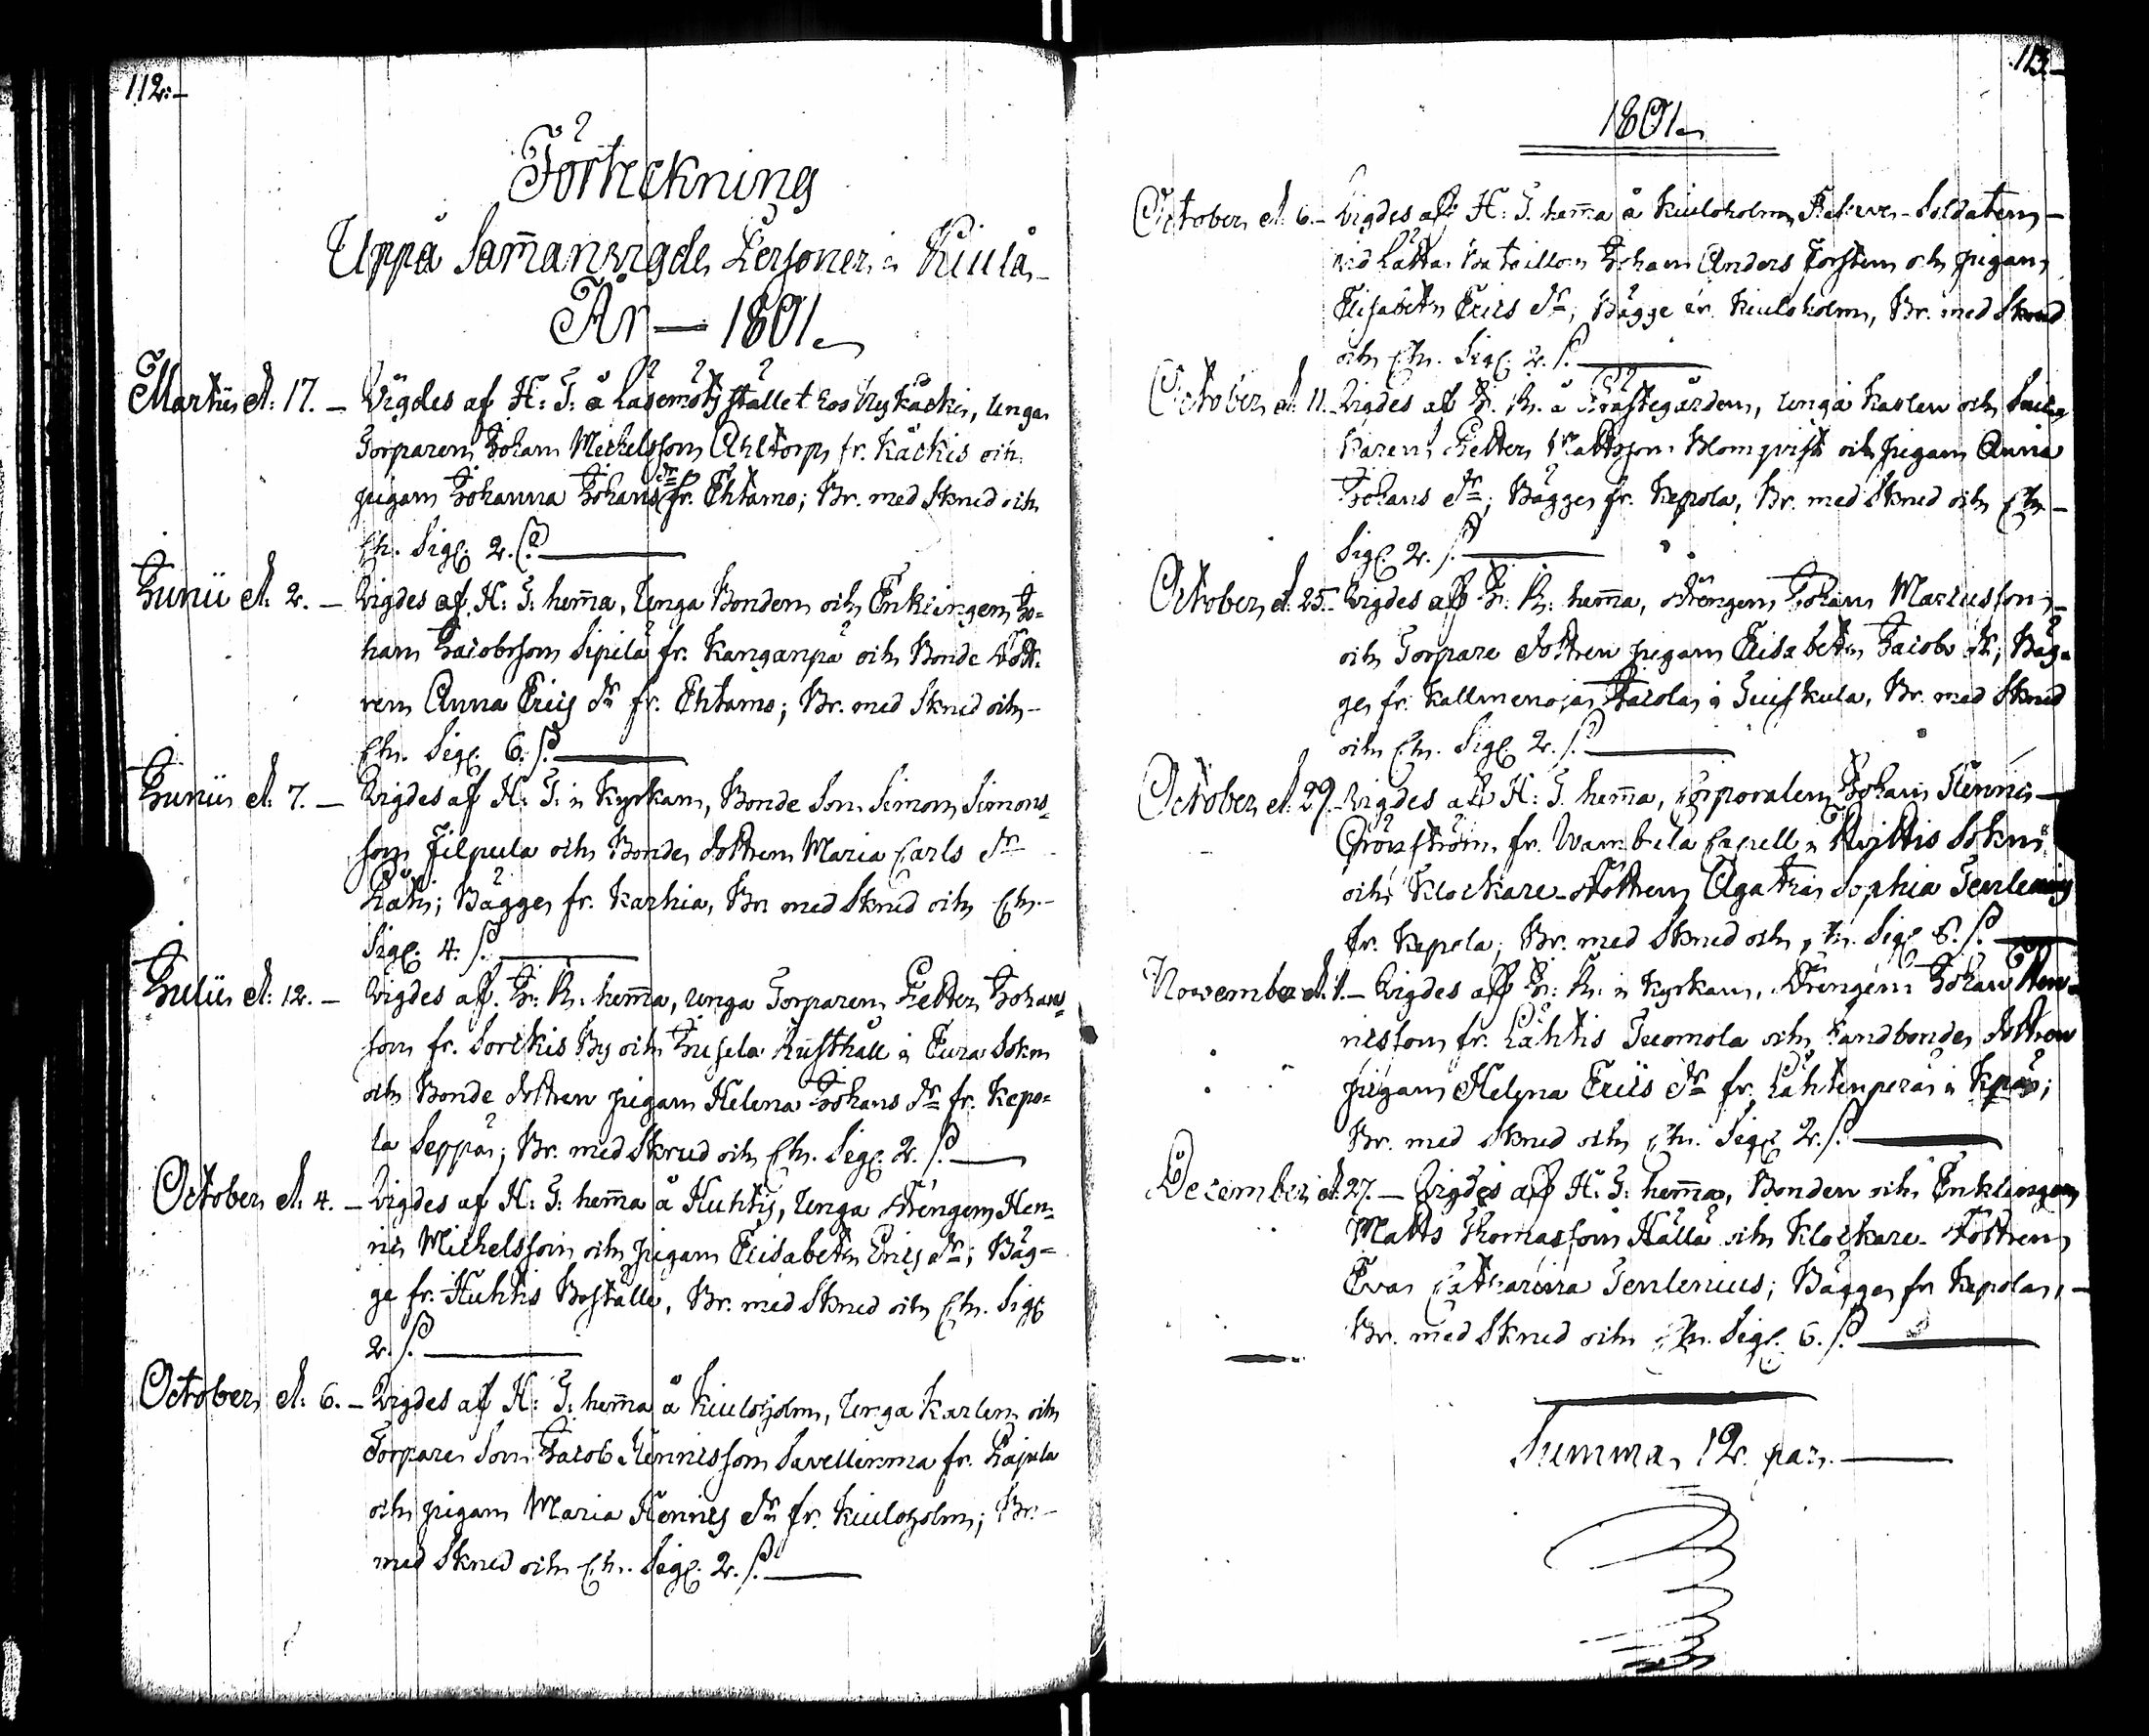 112.
Förteckning
Uppå Sam̄anvigde Personer i Kiula
År — 1801.
Martii d. 17. — Vigdes af H: T: å Läsemötz stället hos Kykäckis, Unga
Torparen Johan Michelsson Ahltorp fr. Käckis och
pigan Johanna Johans dr fr. Ehtamo; Br. med Skrud och
Ch. Sigl. 2. s.
Junii d. 2. — Vigdes af H: T: hem̄a, Unga Bonden och Enklingen Jo=
han Jacobsson Sipilä fr. Kanganpä och Bonde Dött=
ren Anna Erics dr fr. Ehtamo; Br. med Skrud och
Ch. Sigl. 6. s.
Junii d. 7. — Vigdes af H: T: i Kyrkan, Bonde Son Simon Simons=
son Filpula och Bonde dottren Maria Carls dr
Bägge fr. Karhia, Br. med Skrud och Ch.
Sigl. 4. s.
Julii d. 12. — Vigdes af Hr: R: hem̄a, unga Torparen Petter Johans=
son fr. Sorkis By och Jusela Rusthåll i Eura Sokn
och Bonde dottren pigan Helena Johans dr fr. Kepo=
la Seppä; Br. med Skrud och Ch. Sigl. 2. s.
October d. 4. — Vigdes af H: T: hem̄a å Huhtis, Unga Drengen Hen=
ric Michelsson och pigan Elisabeth Erics dr; Bäg=
ge fr. Huhtis Boställe, Br. med Skrud och Ch. Sigl.
2. s.
October d. 6. — Vigdes af H: T: hem̄a å Kiuloholm, Unga Karlen och
Torpare Son Jacob Henricsson Savellinma fr. Pajula
och pigan Maria Henrics dr fr. Kiuloholm; Br.
med Skrud och Ch. Sigl. 2. s.
113.
1801.
October d. 6. — Vigdes af H: T: hem̄a å Kiuloholm, Reserve-Soldaten
vid Lätta Bataillon Johan Anders Forsten och pigan
Elisabeth Erics dr; Bägge fr. Kiuloholm, Br. med Skrud
och Ch. Sigl. 2. s.
October d. 11. Vigdes af Hr. R. å Prästegården, unga Karlen och
Petter Mattsson Blomqvist och pigan Anna
Johans dr; Bägge fr. Kepola, Br. med Skrud och Ch.
Sigl. 2. s.
October d. 25. Vigdes af Hr: R: hem̄a, drengen Johan Mariusson
och Torpare dottren pigan Elisabeth Jacobs dr; Bäg=
ge fr. Kallmenoja Jacola i Tuiskula, Br. med Skrud
och Ch. Sigl. 2. s.
October d. 29. Vigdes af H: T. hem̄a, Corporalen Johan Henric
Grönström fr. Wambula Capell i Hvittis Sokn
och Klockare-Dottren Agatha Sophia Tenlenius
fr. Kepola; Br. med Skrud och Ch. Sigl. 6. s.
November d. 1. — Vigdes af Hr: R: i Kyrkan, Drengen Johan Hen=
ricsson fr. Lähtis Tuomola och Landbonde dottren
pigan Helena Erics dr fr. Lähtenperä i
Br. med Skrud och Ch. Sigl. 2. s.
December d. 27. — Vigdes af H: T: hem̄a, Bonden och Enklingen
Matts Thomasson Hällä och Klockare-Dottren
Eva Catharina Tenlenius; Bägge fr. Kepola,
Br. med Skrud och Ch. Sigl. 6. s.
Summa, 12. par.